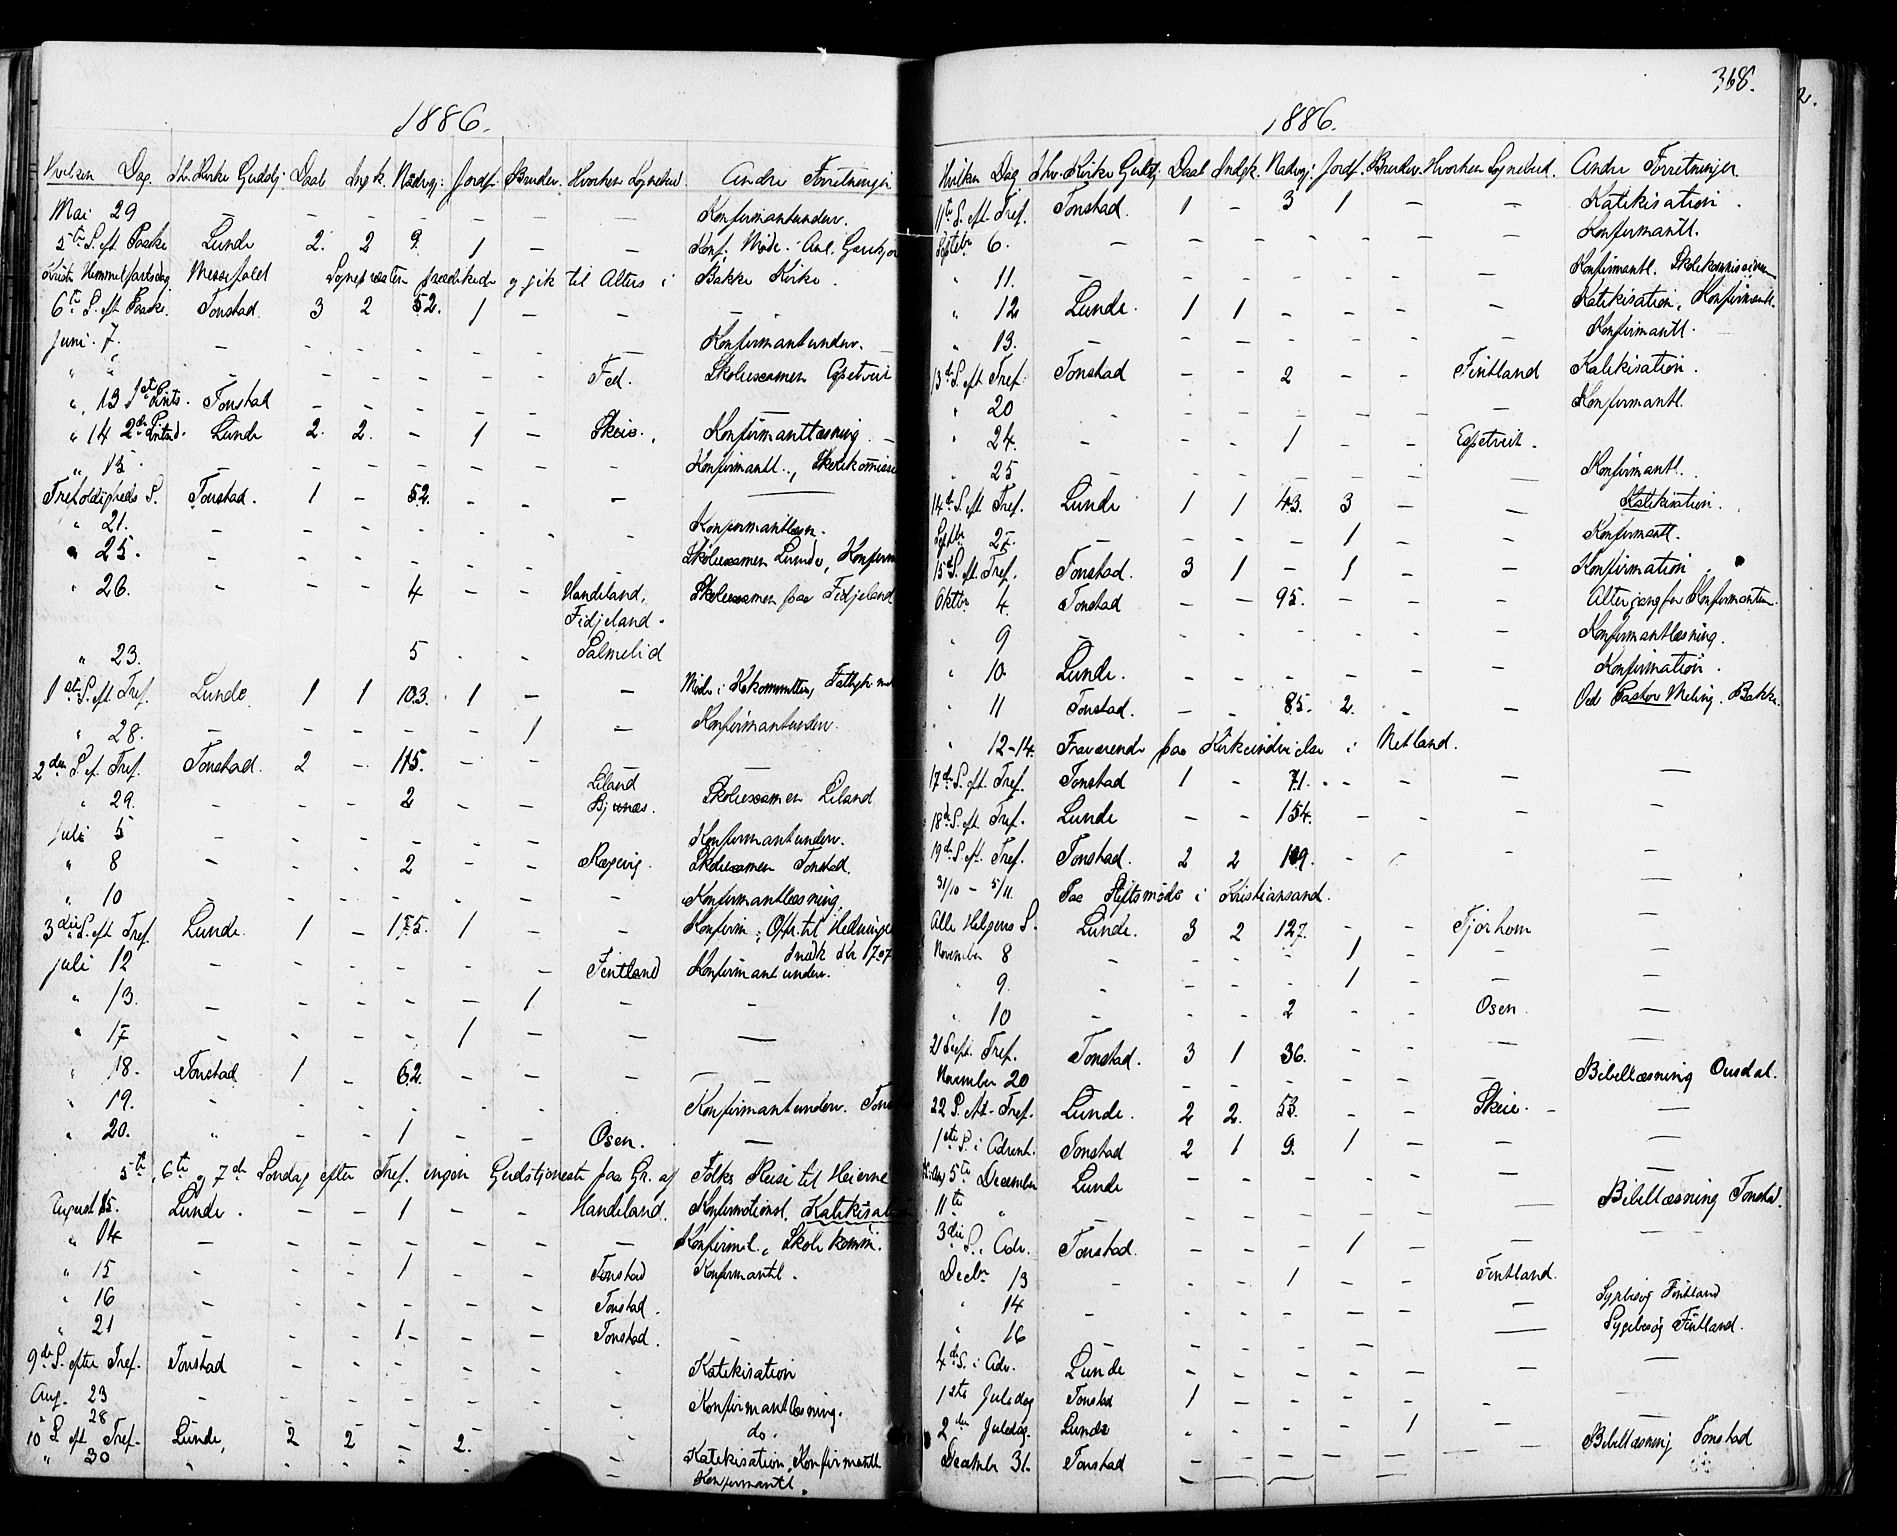 1886.
Hvilken Dag. Hv. Kirke Gudstj. Daab Indg k. Nadvg: Jordf. Brudev. Hvorhen Sognebud. Andre Forretninger
Mai 29 — — — — — — — Konfirmantunderv.
5te S. eft. Paaske Lunde 2. 2 9. 1 — — Konf. Møde.
Kristi Himmelfartsdag. Messefald Sognepræsten prædikede og gik til Alters i Bakke Kirke.
6te S. eft. Paaske. Tonstad. 3 2 52. 1 — — —
Juni. 7. — — — — — — — Konfirmantunderv.
" " — — — — — — Fed. Skoleexamen Espetveit
" 13 1ste Pints. Tonstad — — — — — — —
" 14 2den Pintsd. Lunde 2. 2. — 1 — Skeie. Konfirmantlæsning —
" 15. — — — — — — — Konfirmantl., Skolekommiss
Trefoldigheds S. Tonstad. 1 — 52. — — — —
" 21. — — — — — — — Konfirmantlæsn.
" 25. — — — — — — — Skoleexamen Lunde, Konfirm
" 26. — — — 4 — — Handeland, Skoleexamen paa Fidjeland
Fidjeland.
" 23. 5 . . Salmelid
1ste S. eft. Tref. Lunde 1 1 103. 1 — — Møde i
" 28. — — — — — 1 — Konfirmantunderv.
2den S. ef. Tref. Tonstad. 2 — 115. — — —
Liland
" 29. — — — 2 — — Bjunes. Skoleexamen Liland
Juli 5 — — — — — — — Konfirmantunderv.
" 8 — — . 2 — — Røgevig. Skoleexamen Tonstad.
" 10 — — — — — — — Konfirmantlæsning.
3die S. eft Tref. Lunde. 1 — 175. 1 — — Konfirm.; Ofr. til Hedninge
Juli 12 — — — — — — Fintland Konfirmantunderv.
" 13. — — — — — 1 — —
" 17 — — — — 1 — — —
" 18. Tonstad 1 — 62. — — — —
" 19. — — — — — — . Konfirmantunderv. Tons
" 20. " . . 1 — — Osen. —
5te, 6te og 7de Søndag efter Tref. ingen Gudstjeneste paa Gr. af Folks Reise til Heierne
August 15. Lunde. — — 1 — — Handeland. Katekisat
" 14 — — — — — — — Konfirml., Skolekomm.
" 15 — — — 1 — — Tonstad Konfirmantl.
" 16 — — — — — — Tonstad.
" 21 — — — 1 — — — Tonstad. —
9de S. efter Tref. Tonstad — — — — — — Katekisation
Aug. 23 — — — — — — — Konfirmantlæsning.
" 28 — — — — — — — do.
10 S. eft Tref. Lunde, 2 2 — 2. — — Katekisation, Konfirmantl.
" 30 " . — — — — — Konfirmantl.
368.
1886.
Hvilken Dag Hv. Kirke Gudstj. Daab Indgk. Nadvg: Jordf. Brudev. Hvorhen Sognebud. Andre Forretninger
11te S. eft. Tref. Tonstad. 1 — 3 1 — — Katekisation.
Septebr 6. — — — — — — — Konfirmantl.
" 11. — — — — — — — Konfirmantl. Skolekommissionen
" 12 Lunde. 1 1 — — — — Katekisation, Konfirmantl.
" 13. — — — — — — — Konfirmantl.
13de S. eft Tref. Tonstad — — 2 — — Fintland Katekisation.
" 20 — — — — — — — Konfirmantl.
" 24. — — — 1 — — Espetveit.
" 25 — — — — — — — Konfirmantl.
14de S. eft Tref. Lunde 1 1 43. 3 — — Katekisation.
Septbr 27. — — — — 1 — — Konfirmantl.
15de S. eft. Tref. Tonstad. 3 1 — 1 — — Konfirmation.
Oktbr 4. Tonstad — — 95. — — — Altergang for Konfirmanterne.
" 9 — — — — — — — Konfirmantlæsning.
" 10 Lunde. — — — — — — Konfirmation.
" 11 Tonstad. — — 85. 2. — — Ved Pastor Meling. Bakke.
" 12-14. Fraværende paa Kirkeindvielse i Netland.
17de S. eft. Tref. Tonstad 1 — 71. — — — —
18de S. eft Tref. Lunde — — 154. — — — —
19de S. eft. Tref. Tonstad. 2 2 109. — — — —
31/10 — 5/11. Paa Stiftsmøde i Kristianssand. —
Alle Helgens S. Lunde. 3 2 127. — — Tjørhom —
November 8 — — — — 1 — — —
" 9. — — — — 1 — — —
" 10 — — — 2 — — Osen. —
21 S. eft. Tref. Tonstad. 3 1 36. — — — —
November 20 — — — — — — — Bibellæsning Ousdal.
22 S. eft. Tref. Lunde. 2 2. 53. — — Skeie. —
1ste S. i Advent. Tonstad 2 1 9. 1 — — —
5te December Lunde — — — — — — —
11te " — — — — — — — Bibellæsning Tonstad.
3die S. i Adv. Tonstad. — — — 1 — — —
Decbr 13 — — — 1 — — Fintland.
" 14 — — — — — — — Sygebesøg Fintland
" 16 — — — — — — — Sygebesøg Fintland.
4de S. i Adv. Lunde — — — — — — —
1ste Juledag Tonstad 1 — — — — — —
2den Juledag. Lunde — — — — 1 — —
December 31. Tonstad — — — — — — Bibellæsning Tonstad
2.